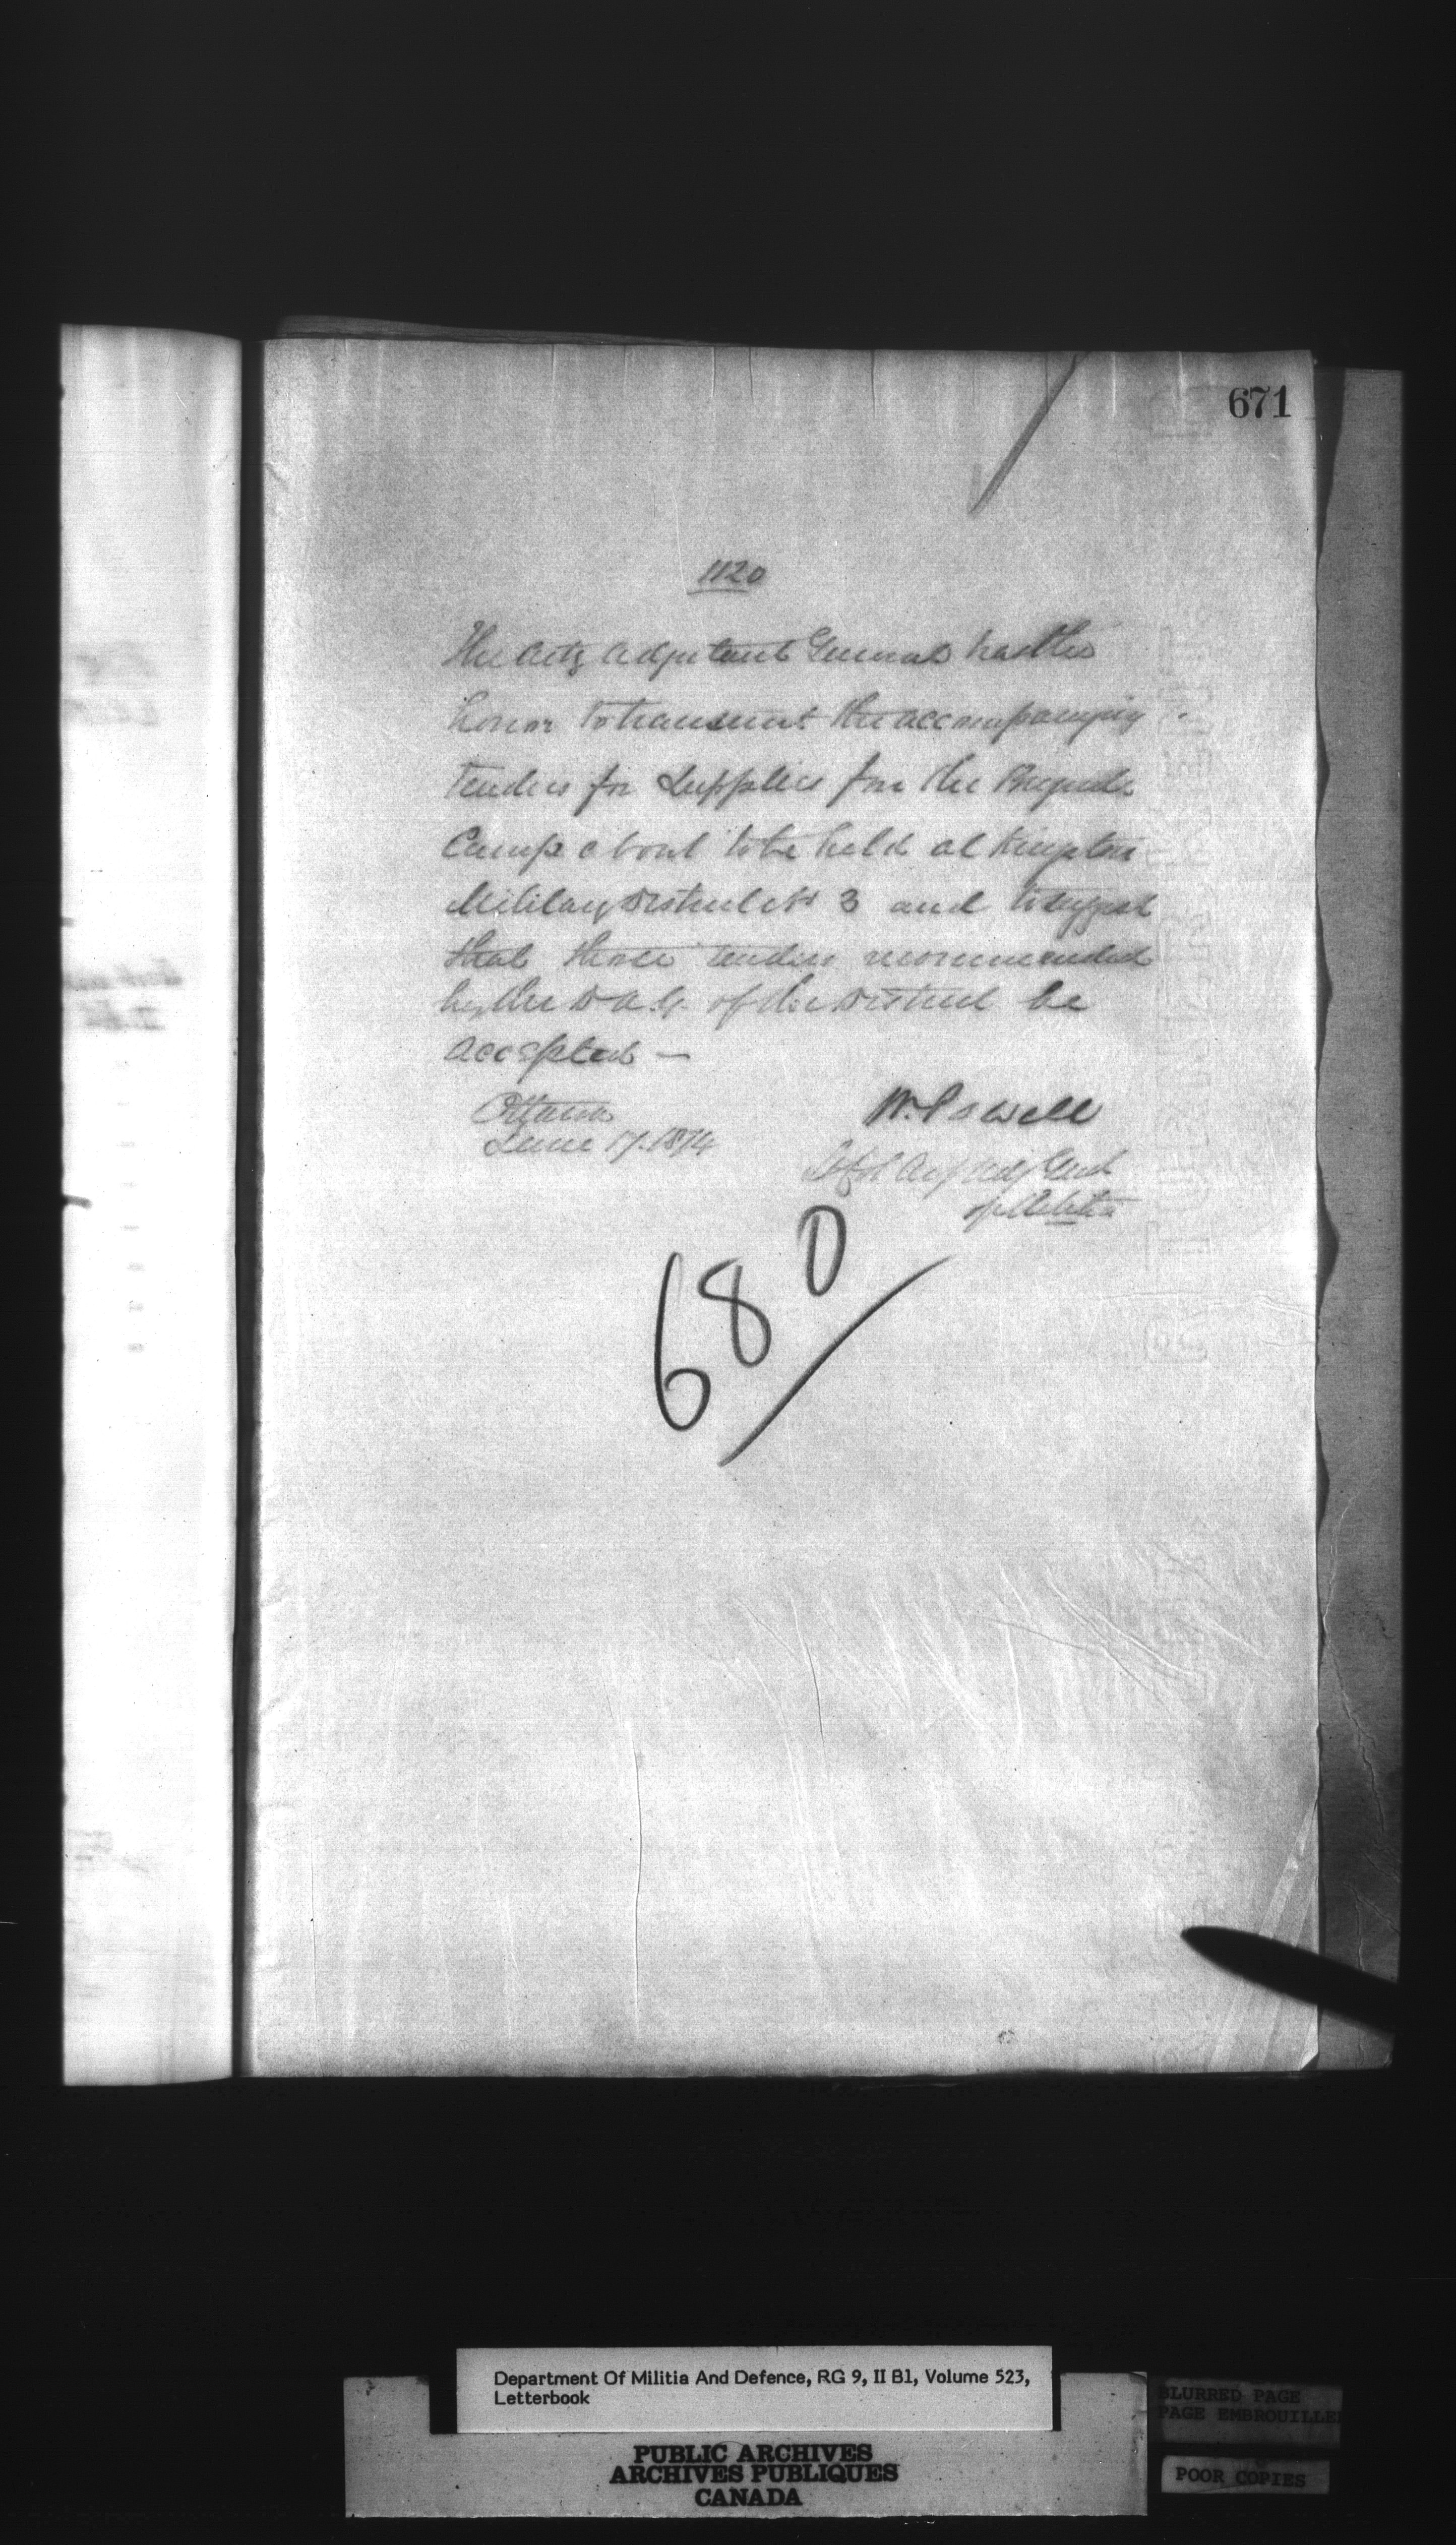 671
1120
The Actg Adjutant General has the
honor to transmit the accompanying
Tenders for Supplies for the Brigade
Camp about to be held at Kingston
Military District No 3 and to suggest
that those tenders recommended
by the D.A.G. of the District be
accepted —
Ottawa
June 17. 1874
W. Powell
Col Actg Adj Genl
of Militia
680
Department Of Militia And Defence, RG 9, II B1, Volume 523,
Letterbook
PUBLIC ARCHIVES
ARCHIVES PUBLIQUES
CANADA
BLURRED PAGE
PAGE EMBROUILLEE
POOR COPIES